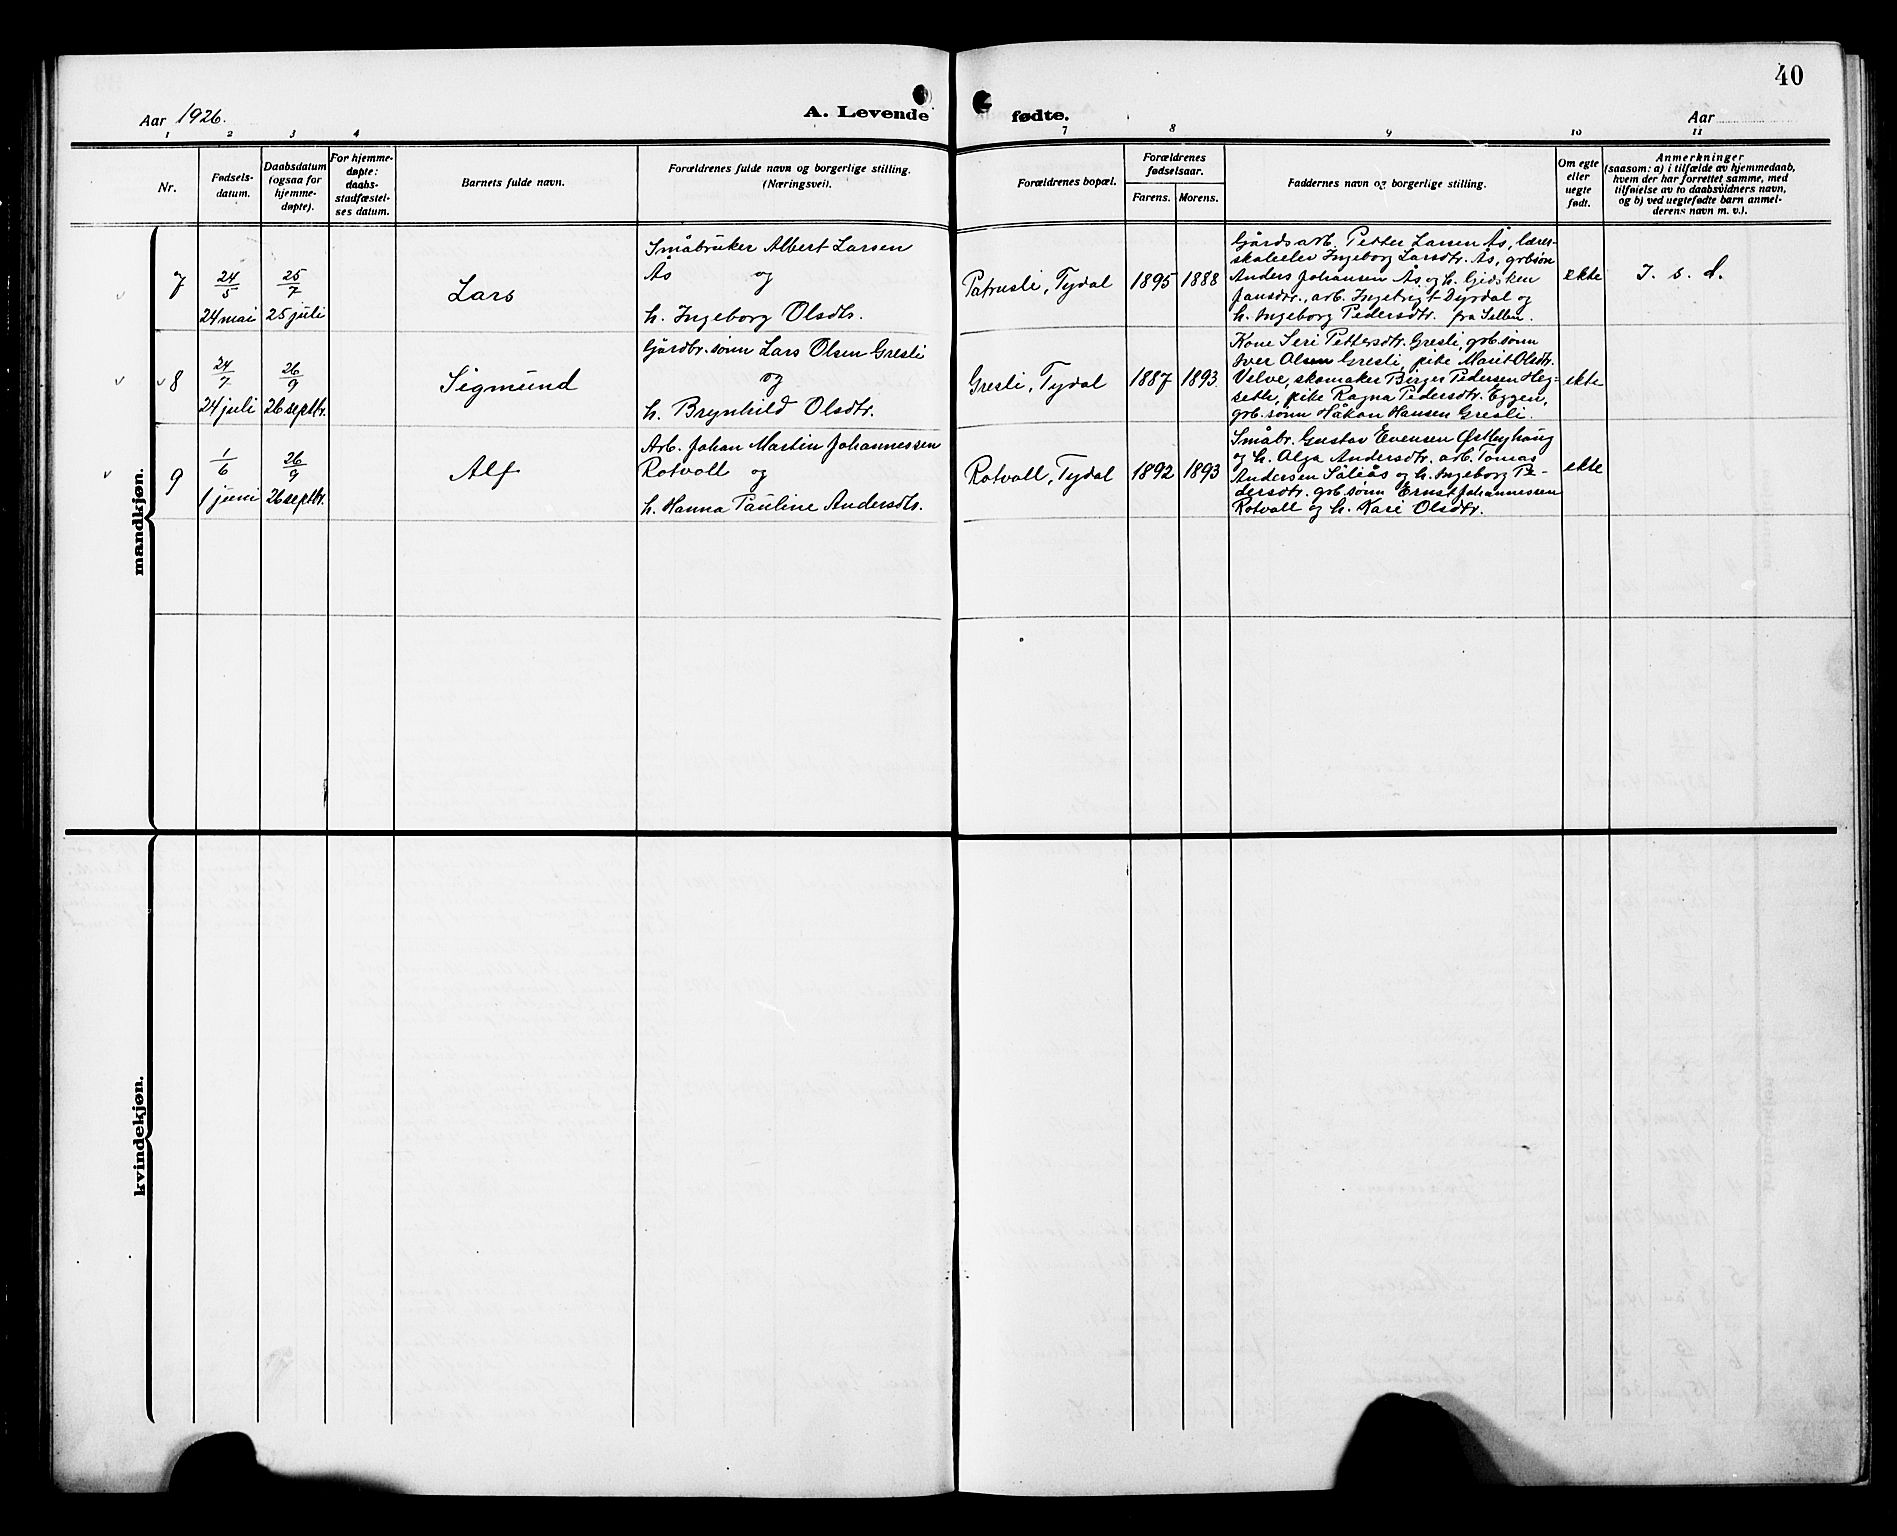 40
Aar 1926.
A. Levende fødte.
Aar
1 2 3 4 7 8 9 10 11
Nr.
Fødsels-
datum.
Daabsdatum
(ogsaa for
hjemme-
døpte).
For hjemme-
døpte:
daabs-
stadfæstel-
ses datum.
Barnets fulde navn.
Forældrenes fulde navn og borgerlige stilling.
(Næringsvei).
Forældrenes bopæl.
Forældrenes
fødselsaar.
Farens. Morens.
Faddernes navn og borgerlige stilling.
Om egte
eller
uegte
født.
Anmerkninger
(saasom: a) i tilfælde av hjemmedaab,
hvem der har forrettet samme, med
tilføielse av to daabsvidners navn,
og b) ved uegtefødte barn anmel-
derens navn m. v.).
mandkjøn.
7
24/5
24 mai
25/7
25 juli
Lars
Småbruker Albert Larsen
Ås og
h. Ingeborg Olsdtr.
Patrusli, Tydal
1895 1888
Gårdsarb. Petter Larsen Ås, lærer-
skoleelev Ingeborg Larsdtr. Ås, grbsøn
Anders Johansen Ås og h. Gjidsken
Jansdtr., arb. Ingebrigt Dyrdal og
h. Ingeborg Pedersdtr. fra Selbu.
ekte
I. s. d.
8
24/7
24 juli
26/9
26 septbr.
Sigmund
Gårdbr. sønn Lars Olsen Gresli
og
h. Brynhild Olsdtr.
Gresli, Tydal
1887 1893
Kone Seri Pettersdtr. Gresli, grb. sønn
Iver Olsen Gresli, pike Marit Olsdtr.
Velve, skomaker Birger Pedersen Heg-
sette, pike Ragna Pedersdtr. Eggen,
grb. sønn Håkon Hansen Gresli.
ekte
9
1/6
1 juni
26/9
26 septbr.
Alf
Arb. Johan Martin Johannessen
Rotvoll og
h. Hanna Pauline Andersdtr.
Rotvoll, Tydal
1892 1893
Småbr. Gustav Evensen Østbyhaug
og h. Olga Andersdtr. arb. Tomas
Andersen Såliås og h. Ingeborg Pe-
dersdtr. grb. sønn Ernst Johannessen
Rotvoll og h. Kari Olsdtr.
ekte
kvindekjøn.